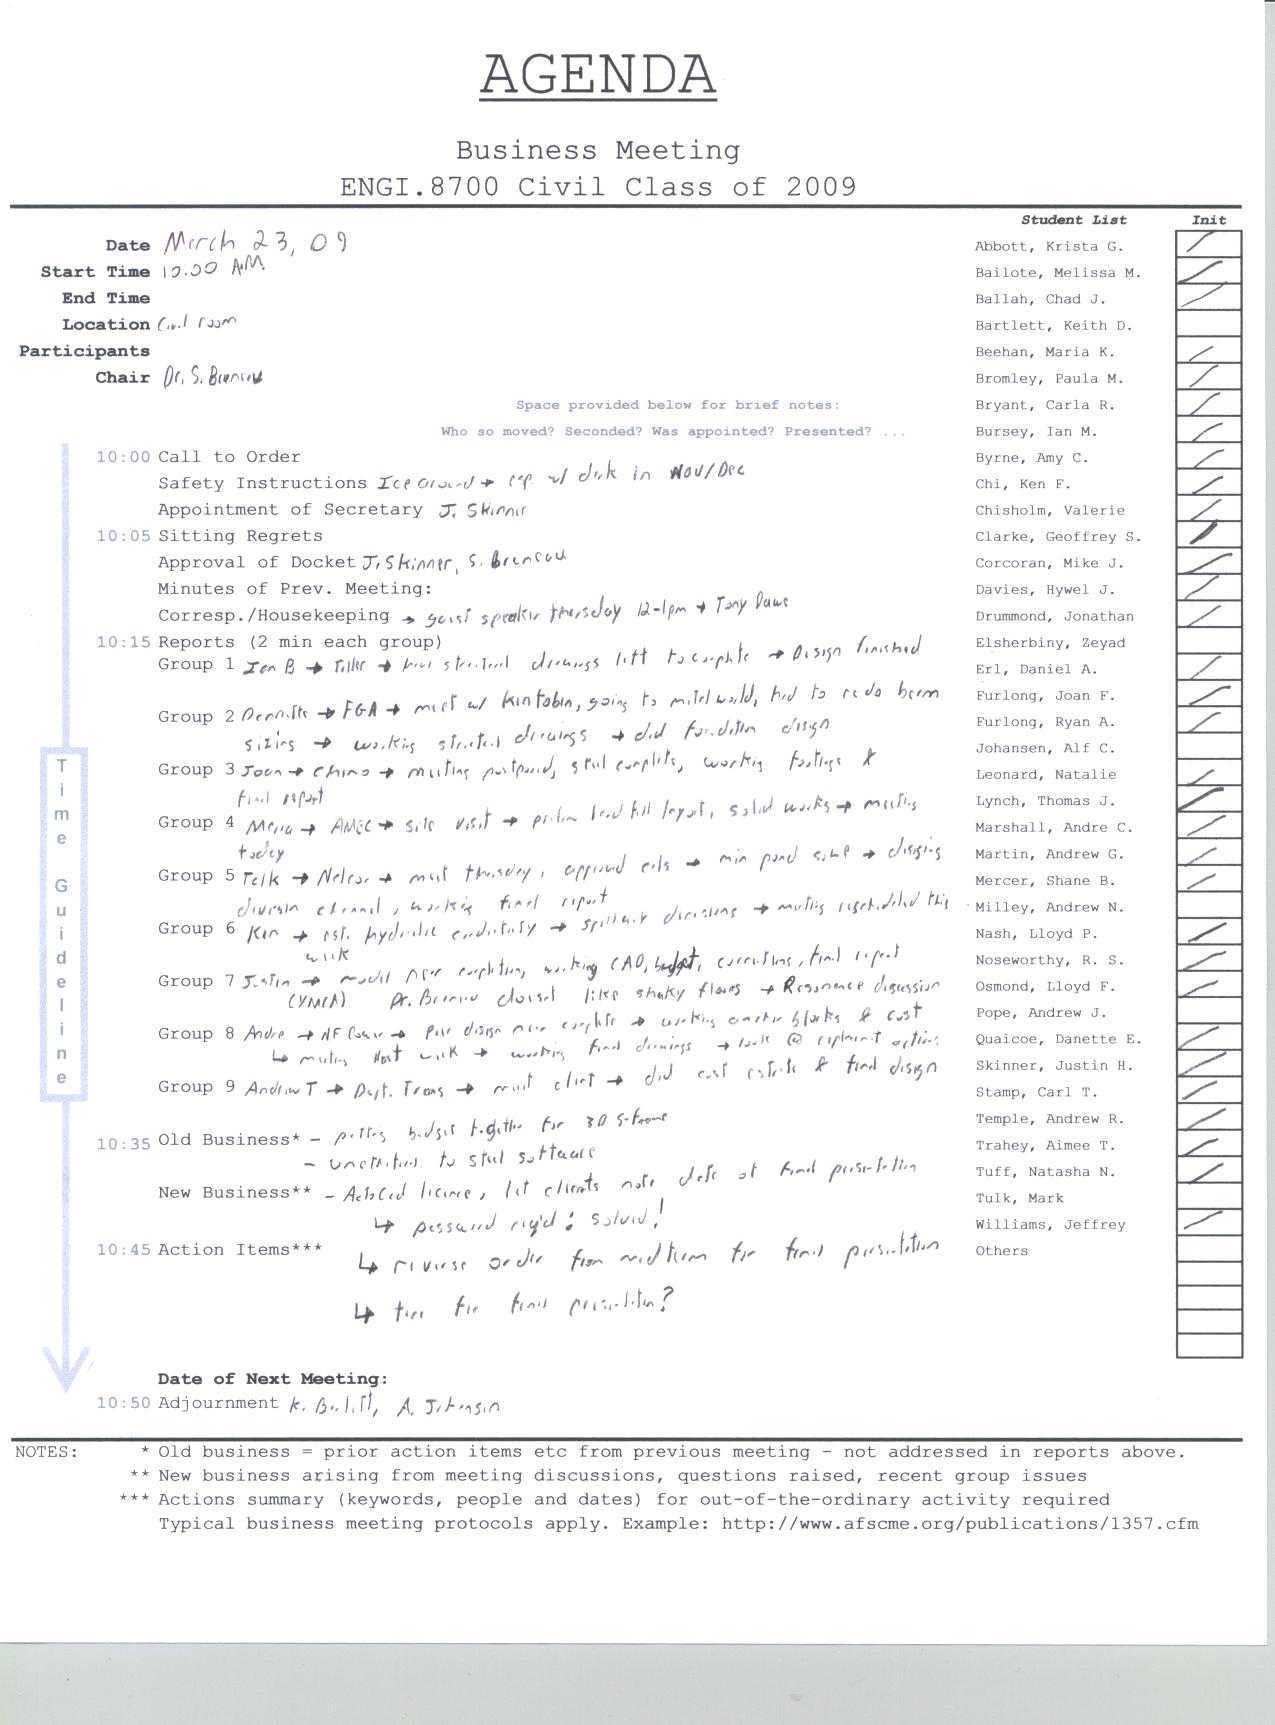 AGENDA
Business Meeting
ENGI.8700 Civil Class of 2009
Student List Init
Date March 23, 09
Start Time 10:00 A.M.
End Time
Location Civil room
Participants
Chair Dr. S. Bruneau
Space provided below for brief notes:
Who so moved? Seconded? Was appointed? Presented? ...
10:00 Call to Order
Safety Instructions Ice around → rep. w/ dick in Nov/Dec
Appointment of Secretary J. Skinner
10:05 Sitting Regrets
Approval of Docket J. Skinner, S. Bruneau
Minutes of Prev. Meeting:
Corresp./Housekeeping → guest speaker thursday 12-1pm → Tony Dawe
10:15 Reports (2 min each group)
Group 1 Ian B → → structural drawings left to complete → Design finished
Group 2 Dannette → FGA → meet w/ going to metal world, had to redo beam
sizing → working structural drawings → did foundation design
Group 3 Joan → → meeting postponed, steel complete, working footings &
final report
Group 4 Maria → AMEC → site visit → prelim land fill layout, solid works → meeting
today
Group 5 → Nalcor → meet thursday, approved → min pond → designing
diversion channel, working final report
Group 6 Ken → est. hydraulic conductivity → spillway → meeting rescheduled this
week
Group 7 Justin → model near completion, working CAD, budget, corrections, final report
(YMCA) Dr. Bruneau doesn't like shaky floors → Resonance discussion
Group 8 Andre → NF Power → Pole design near complete → working anchor blocks & cost
↳ meeting Next week → working final drawings → look @ replacement options
Group 9 Andrew T → Dept. Trans → meet client → did cost estimate & final design
10:35 Old Business* - putting budget together for 3D S-frame
- to steel software
New Business** - licence, let clients note date of final presentation
↳ password req'd : solved!
10:45 Action Items*** ↳ reverse order from midterm for final presentation
↳ time for final presentation?
Date of Next Meeting:
10:50 Adjournment K. Bartlett, A. Johansen
Time Guideline
Abbott, Krista G.
Bailote, Melissa M.
Ballah, Chad J.
Bartlett, Keith D.
Beehan, Maria K.
Bromley, Paula M.
Bryant, Carla R.
Bursey, Ian M.
Byrne, Amy C.
Chi, Ken F.
Chisholm, Valerie
Clarke, Geoffrey S.
Corcoran, Mike J.
Davies, Hywel J.
Drummond, Jonathan
Elsherbiny, Zeyad
Erl, Daniel A.
Furlong, Joan F.
Furlong, Ryan A.
Johansen, Alf C.
Leonard, Natalie
Lynch, Thomas J.
Marshall, Andre C.
Martin, Andrew G.
Mercer, Shane B.
Milley, Andrew N.
Nash, Lloyd P.
Noseworthy, R. S.
Osmond, Lloyd F.
Pope, Andrew J.
Quaicoe, Danette E.
Skinner, Justin H.
Stamp, Carl T.
Temple, Andrew R.
Trahey, Aimee T.
Tuff, Natasha N.
Tulk, Mark
Williams, Jeffrey
Others
NOTES: * Old business = prior action items etc from previous meeting - not addressed in reports above.
** New business arising from meeting discussions, questions raised, recent group issues
*** Actions summary (keywords, people and dates) for out-of-the-ordinary activity required
Typical business meeting protocols apply. Example: http://www.afscme.org/publications/1357.cfm